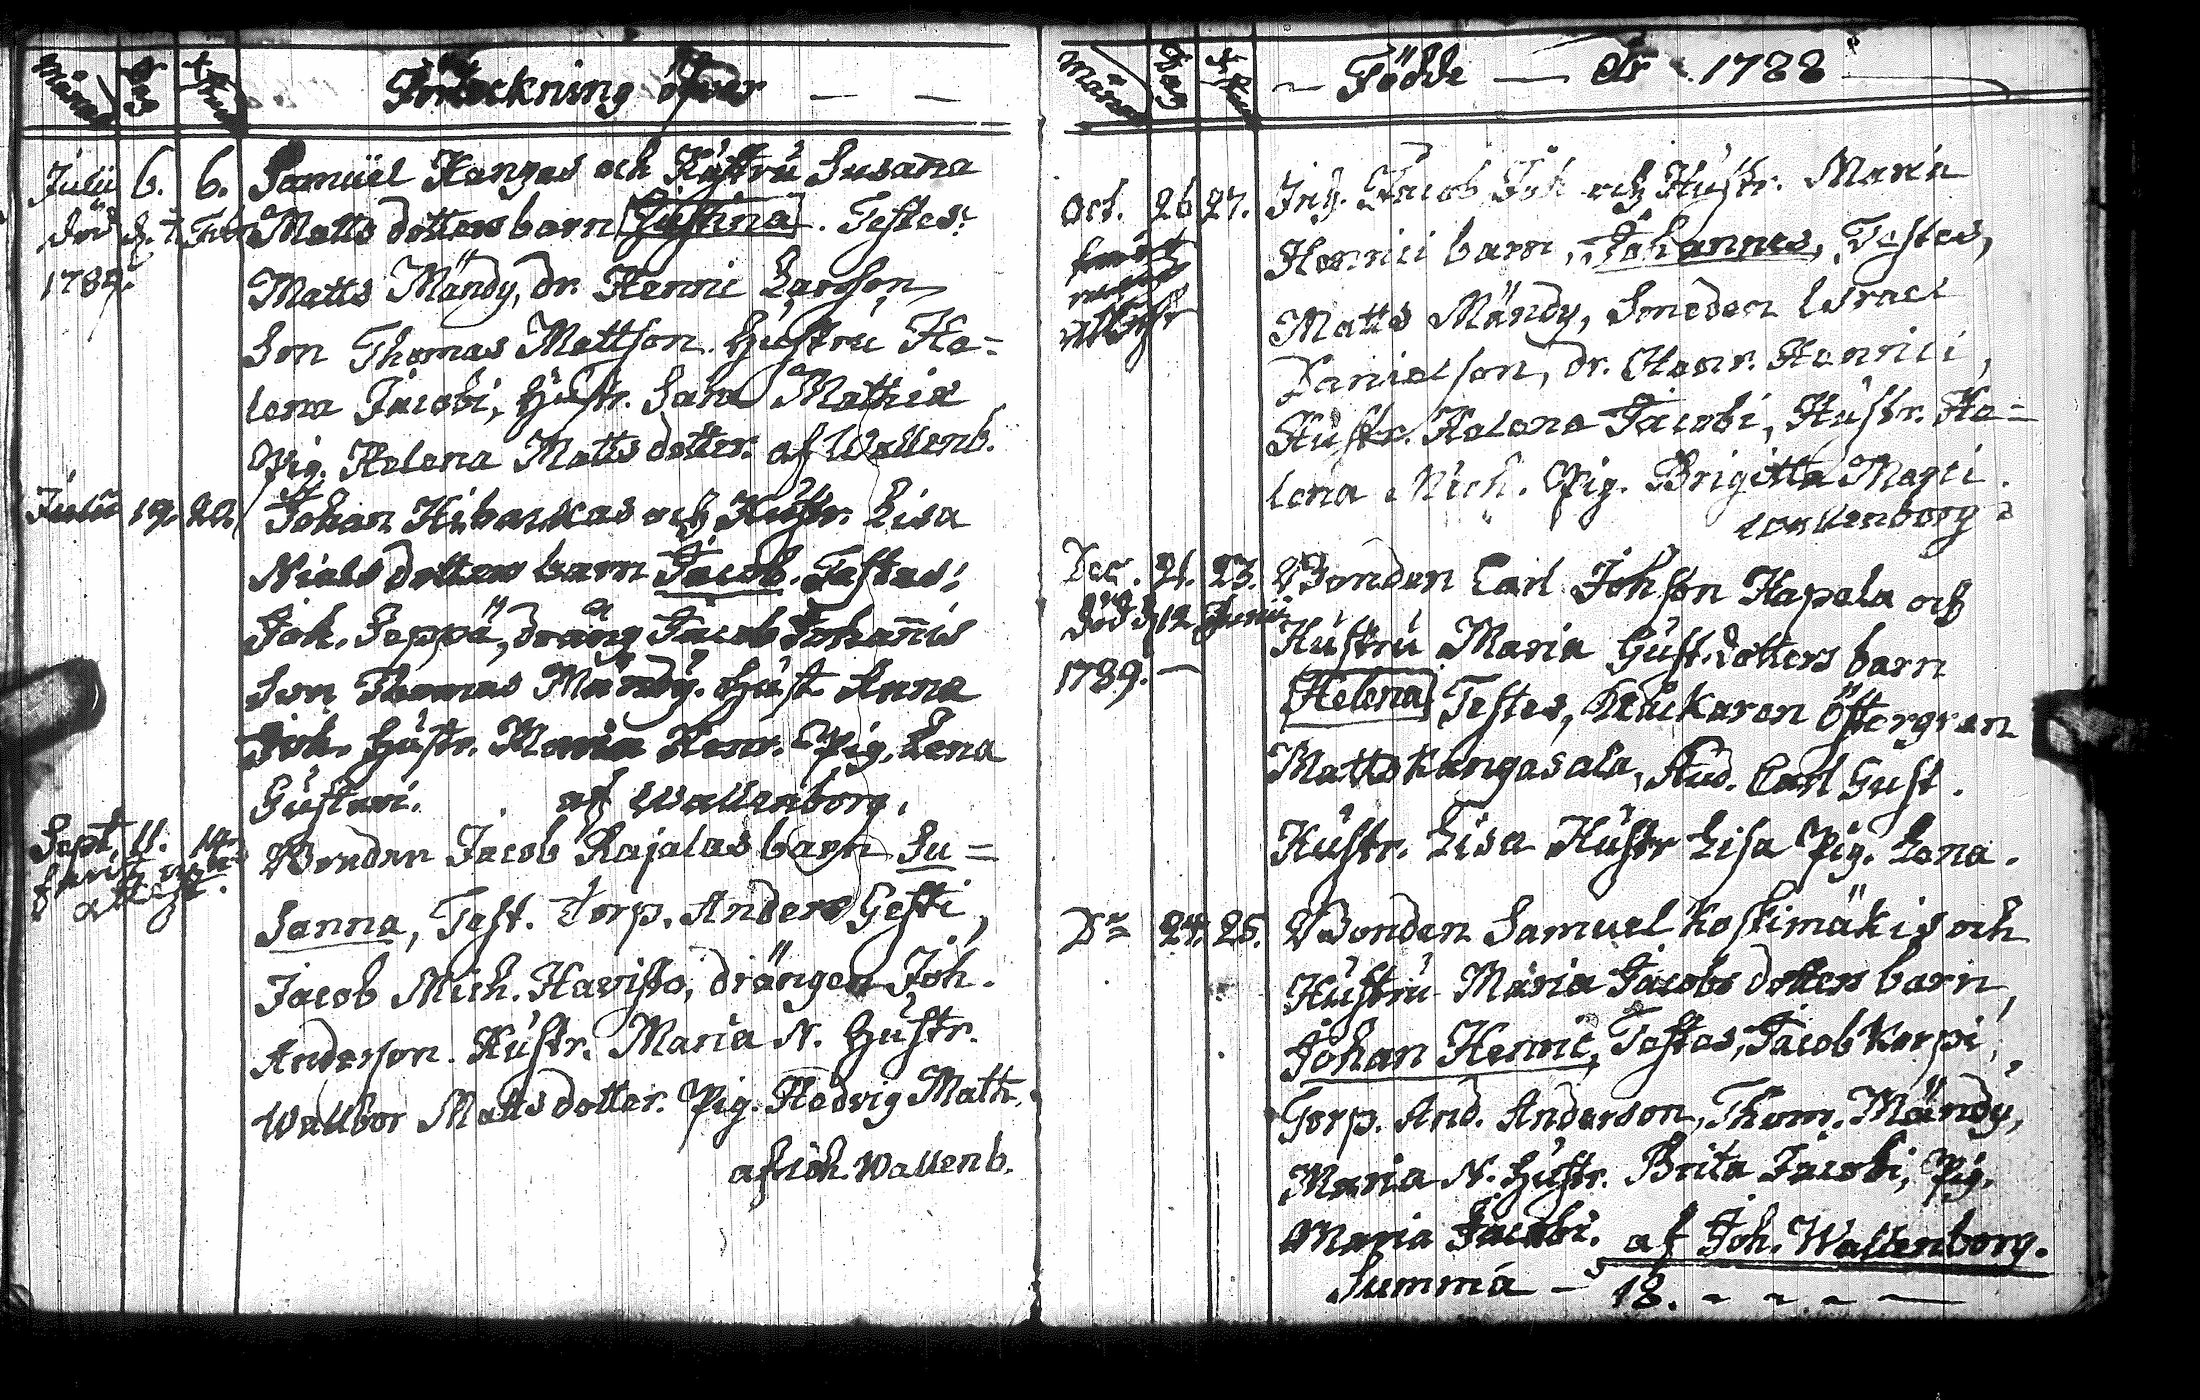 Månad Dag Christn.
Förteckning öfver — —
Julii 6. 6. Samuel Kangas och Hustru Susana
död d. 7 Febr Matts dotters barn Justina. Testes:
1789. Matts Mändy, dr. Henric Larsson,
Son Thomas Mattson. Hustru He=
lena Jacobi, Hustr. Sara Mathiæ
Pig. Helena Matts dotter. af Wallenb.
Julii 19. 20. Johan Kibarkas och Hustr. Lisa
Niels dotters barn Jacob. Testes:
Joh. Seppä, dräng Jacob Johannis
Son Thomas Mändy. Hust. Anna
Joh. Hustr. Maria Henr. Pig. Lena
Gustavi. af Wallenborg.
Sept. 11. 14. Bonden Jacob Rajalas barn Su=
attest. Sanna, Test. Torp. Anders Gesti,
Jacob Mich. Havisto, drängen Joh.
Anderson. Hustr. Maria N. Hustr.
Wallbor Matts dotter. Pig. Hedvig Math.
af Joh. Wallenb.
Månad Dag Christn.
— Födde — År 1788
Oct. 26 27. Jacob Joh och Hustr. Maria
Henrici barn, Johannes, Testes,
Matts Mändy, Smeden Israel
attest Danielson, dr. Henr. Henrici,
Hustr. Helena Jacobi, Hustr. He=
lena Mich. Pig. Brigitta Marci.
Wallenborg
Dec. 21. 23. Bonden Carl Johson Hapela och
död d. 12 Junii Hustru Maria Gust. dotters barn
1789. — Helena Testes, Östergren
Matts Kangasala, Stud. Carl Gust.
Hustr. Lisa Hustr Lisa Pig. Lena.
Do 24. 25. Bonden Samuel Koskimäkis och
Hustru Maria Jacobs dotters barn,
Johan Henric, Testes, Jacob Korpi,
Torp. And. Anderson, Thom. Mändy,
Maria N. Hustr. Brita Jacobi, Pig.
Maria Jacobi. af Joh. Wallenborg.
Summa — 18. — — — —